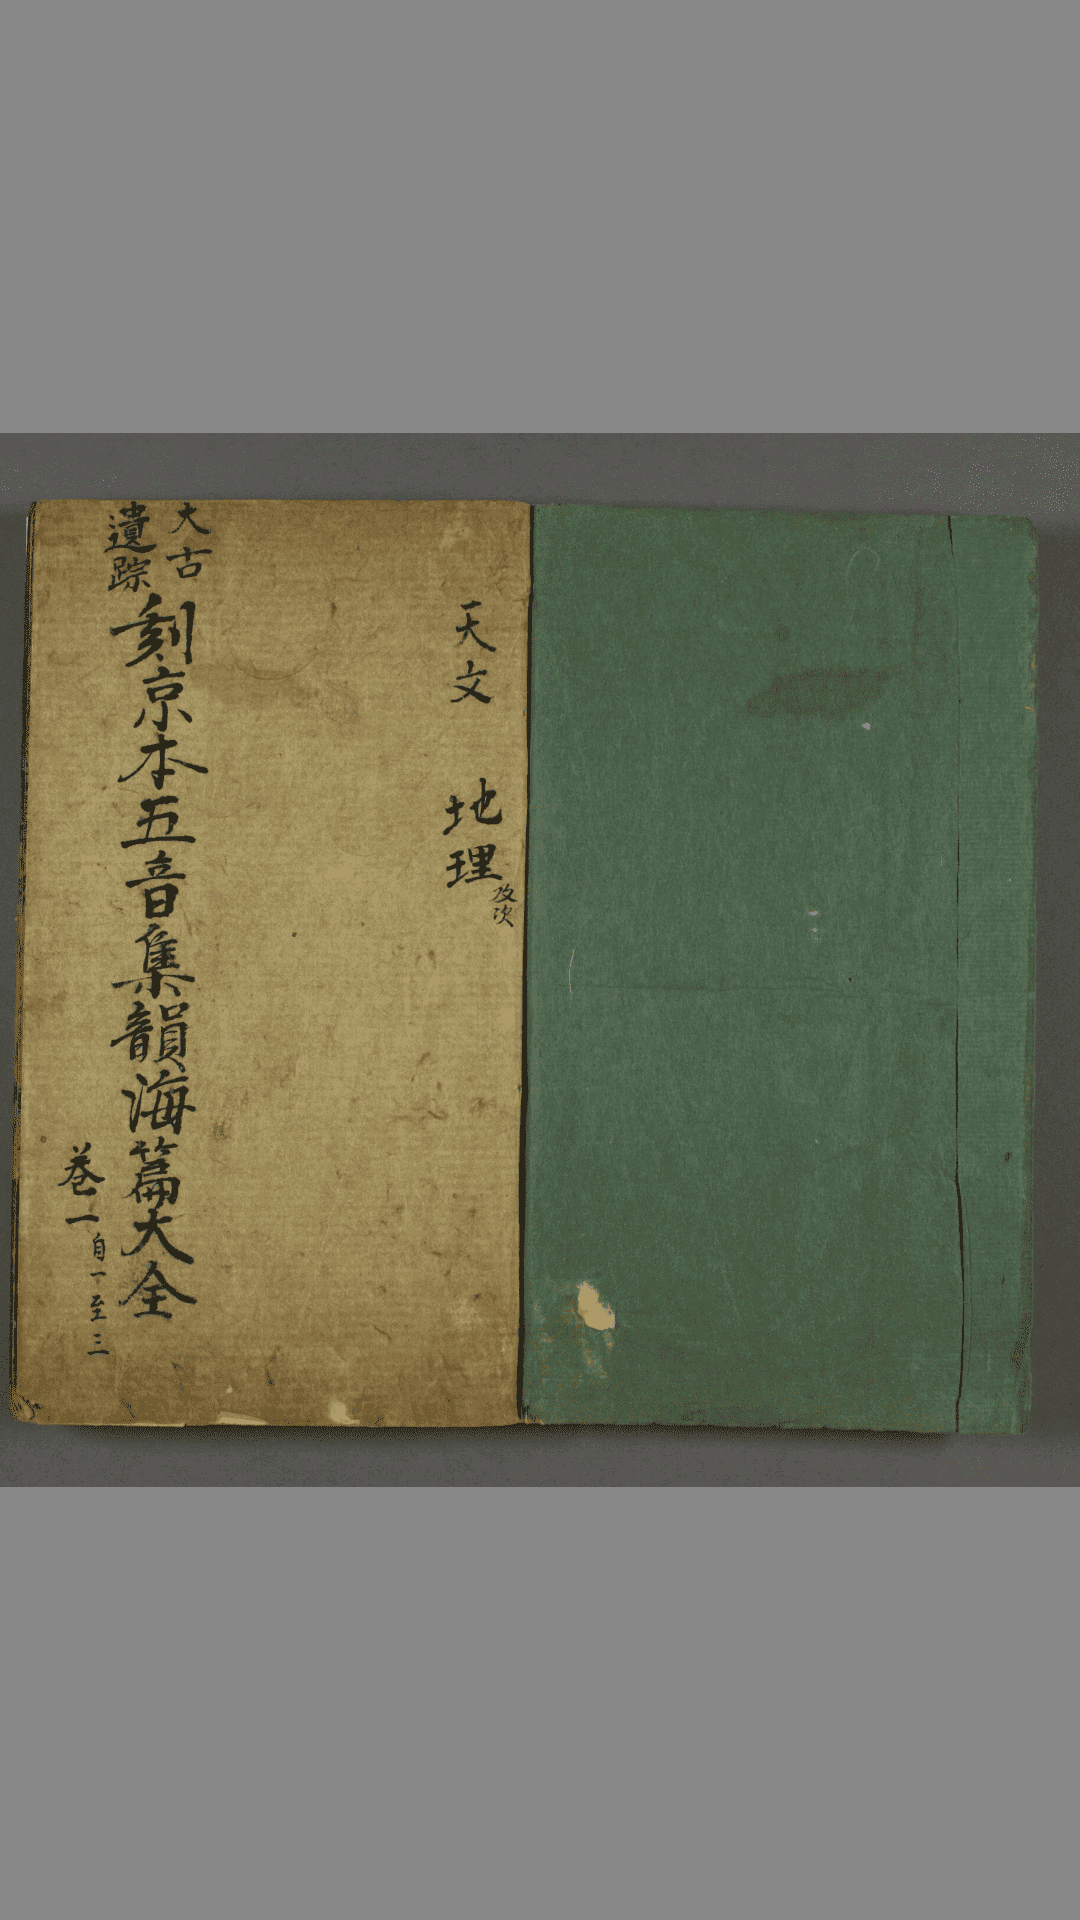 天文 地理
及次
大古
遺踪
刻京本五音集韻海篇大全
巻一
自一至三